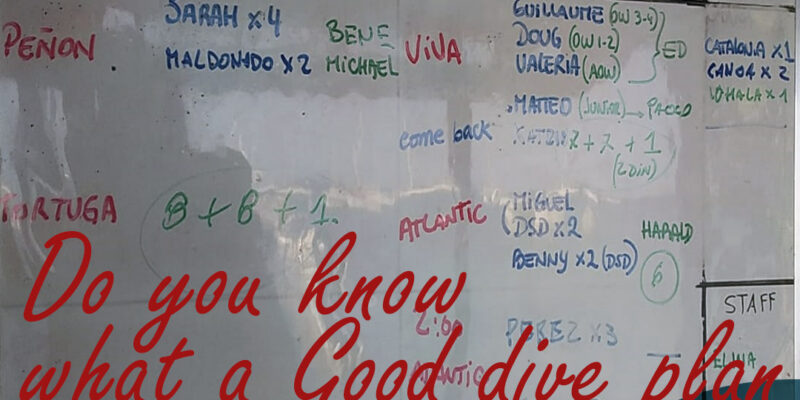 SARAH x 4
PEÑON
MALDONADO x 2
BENE
MICHAEL
VIVA
GUILLAUME (OW 3-4)
DOUG (OW 1-2)
VALERIA (AOW)
ED
MATTEO (JUNIOR) → PACCO
CATALONIA x 1
CANOA x 2
x 1
come back
7 + 7 + 1
(2 DIN)
TORTUGA
8 + 8 + 1.
ATLANTIC
MIGUEL
DSD x 2
BENNY x 2 (DSD)
HARALD
6
PEREZ x 3
ATLANTIC
STAFF
Do you know
what a Good dive plan